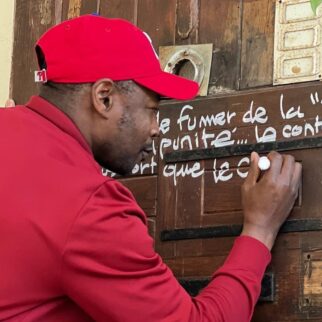 le fumer de la "
punité... le cont
ort que le c